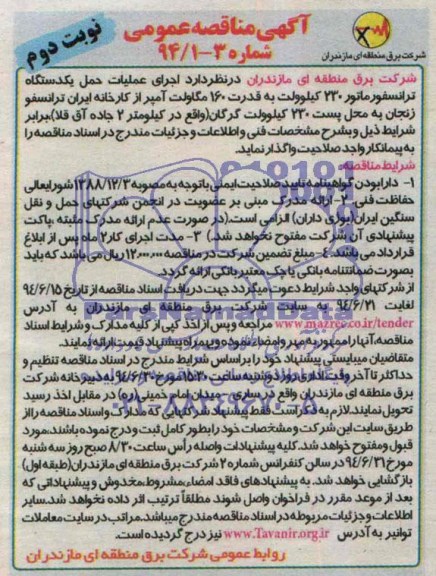 آگهی مناقصه عمومی
شماره ۳-۹۴/۱
نوبت دوم
شرکت برق منطقه ای مازندران
شرکت برق منطقه ای مازندران درنظردارد اجرای عملیات حمل یکدستگاه
ترانسفورماتور ۲۳۰ کیلوولت به قدرت ۱۶۰ مگاولت آمپر از کارخانه ایران ترانسفو
زنجان به محل پست ۲۳۰ کیلوولت گرگان(واقع در کیلومتر ۲ جاده آق قلا)،برابر
شرایط ذیل و بشرح مشخصات فنی و اطلاعات و جزئیات مندرج در اسناد مناقصه را
به پیمانکار واجد صلاحیت واگذار نماید.
شرایط مناقصه:
۱- دارا بودن گواهینامه تایید صلاحیت ایمنی باتوجه به مصوبه ۱۳۸۸/۱۲/۳ شورایعالی
حفاظت فنی ۲- ارائه مدرک مبنی بر عضویت در انجمن شرکتهای حمل و نقل
سنگین ایران(بوژی داران) الزامی است.(در صورت عدم ارائه مدرک مثبته ،پاکت
پیشنهادی آن شرکت مفتوح نخواهد شد.) ۳- مدت اجرای کار ۲ ماه پس از ابلاغ
قرارداد می باشد. مبلغ تضمین شرکت در مناقصه ریال می باشد که باید
بصورت ضمانتنامه بانکی یا چک معتبر بانکی ارائه گردد.
از شرکتهای واجد شرایط دعوت میگردد جهت دریافت اسناد مناقصه از تاریخ ۹۴/۶/۱۵
لغایت ۹۴/۶/۲۱ به سایت شرکت برق منطقه ای مازندران به آدرس
www.mazrec.co.ir/tender مراجعه و پس از اخذ کپی از کلیه مدارک و شرایط اسناد
مناقصه،آنها را ممهور به مهر و امضاء نموده و به همراه پیشنهاد قیمت ارائه نمایند.
متقاضیان میبایستی پیشنهاد خود را بر اساس شرایط مندرج در اسناد مناقصه تنظیم و
حداکثر تا آخر وقت اداری روز دوشنبه ساعت ۱۵:۳۰ مورخ ۹۴/۶/۳۰ به دبیرخانه شرکت
برق منطقه ای مازندران واقع در ساری ، میدان امام خمینی(ره) در مقابل اخذ رسید
تحویل نمایند.لازم به ذکر است فقط پیشنهاد شرکتهایی که مدارک و اسناد مناقصه را از
طریق سایت این شرکت و مشخصات خود را بطور کامل ثبت و درج نموده باشند،مورد
قبول و مفتوح خواهد شد.کلیه پیشنهادات واصله رأس ساعت ۸/۳۰ صبح روز سه شنبه
مورخ ۹۴/۶/۳۱ در سالن کنفرانس شماره ۲ شرکت برق منطقه ای مازندران(طبقه اول)
بازگشایی خواهد شد. به پیشنهادهای فاقد امضاء،مشروط،مخدوش و پیشنهاداتی که
بعد از موعد مقرر در فراخوان واصل شوند مطلقاً ترتیب اثر داده نخواهد شد.سایر
اطلاعات و جزئیات مربوطه در اسناد مناقصه مندرج میباشد.مراتب در سایت معاملات
توانیر به آدرس www.Tavanir.org.ir نیز درج گردیده است.
روابط عمومی شرکت برق منطقه ای مازندران